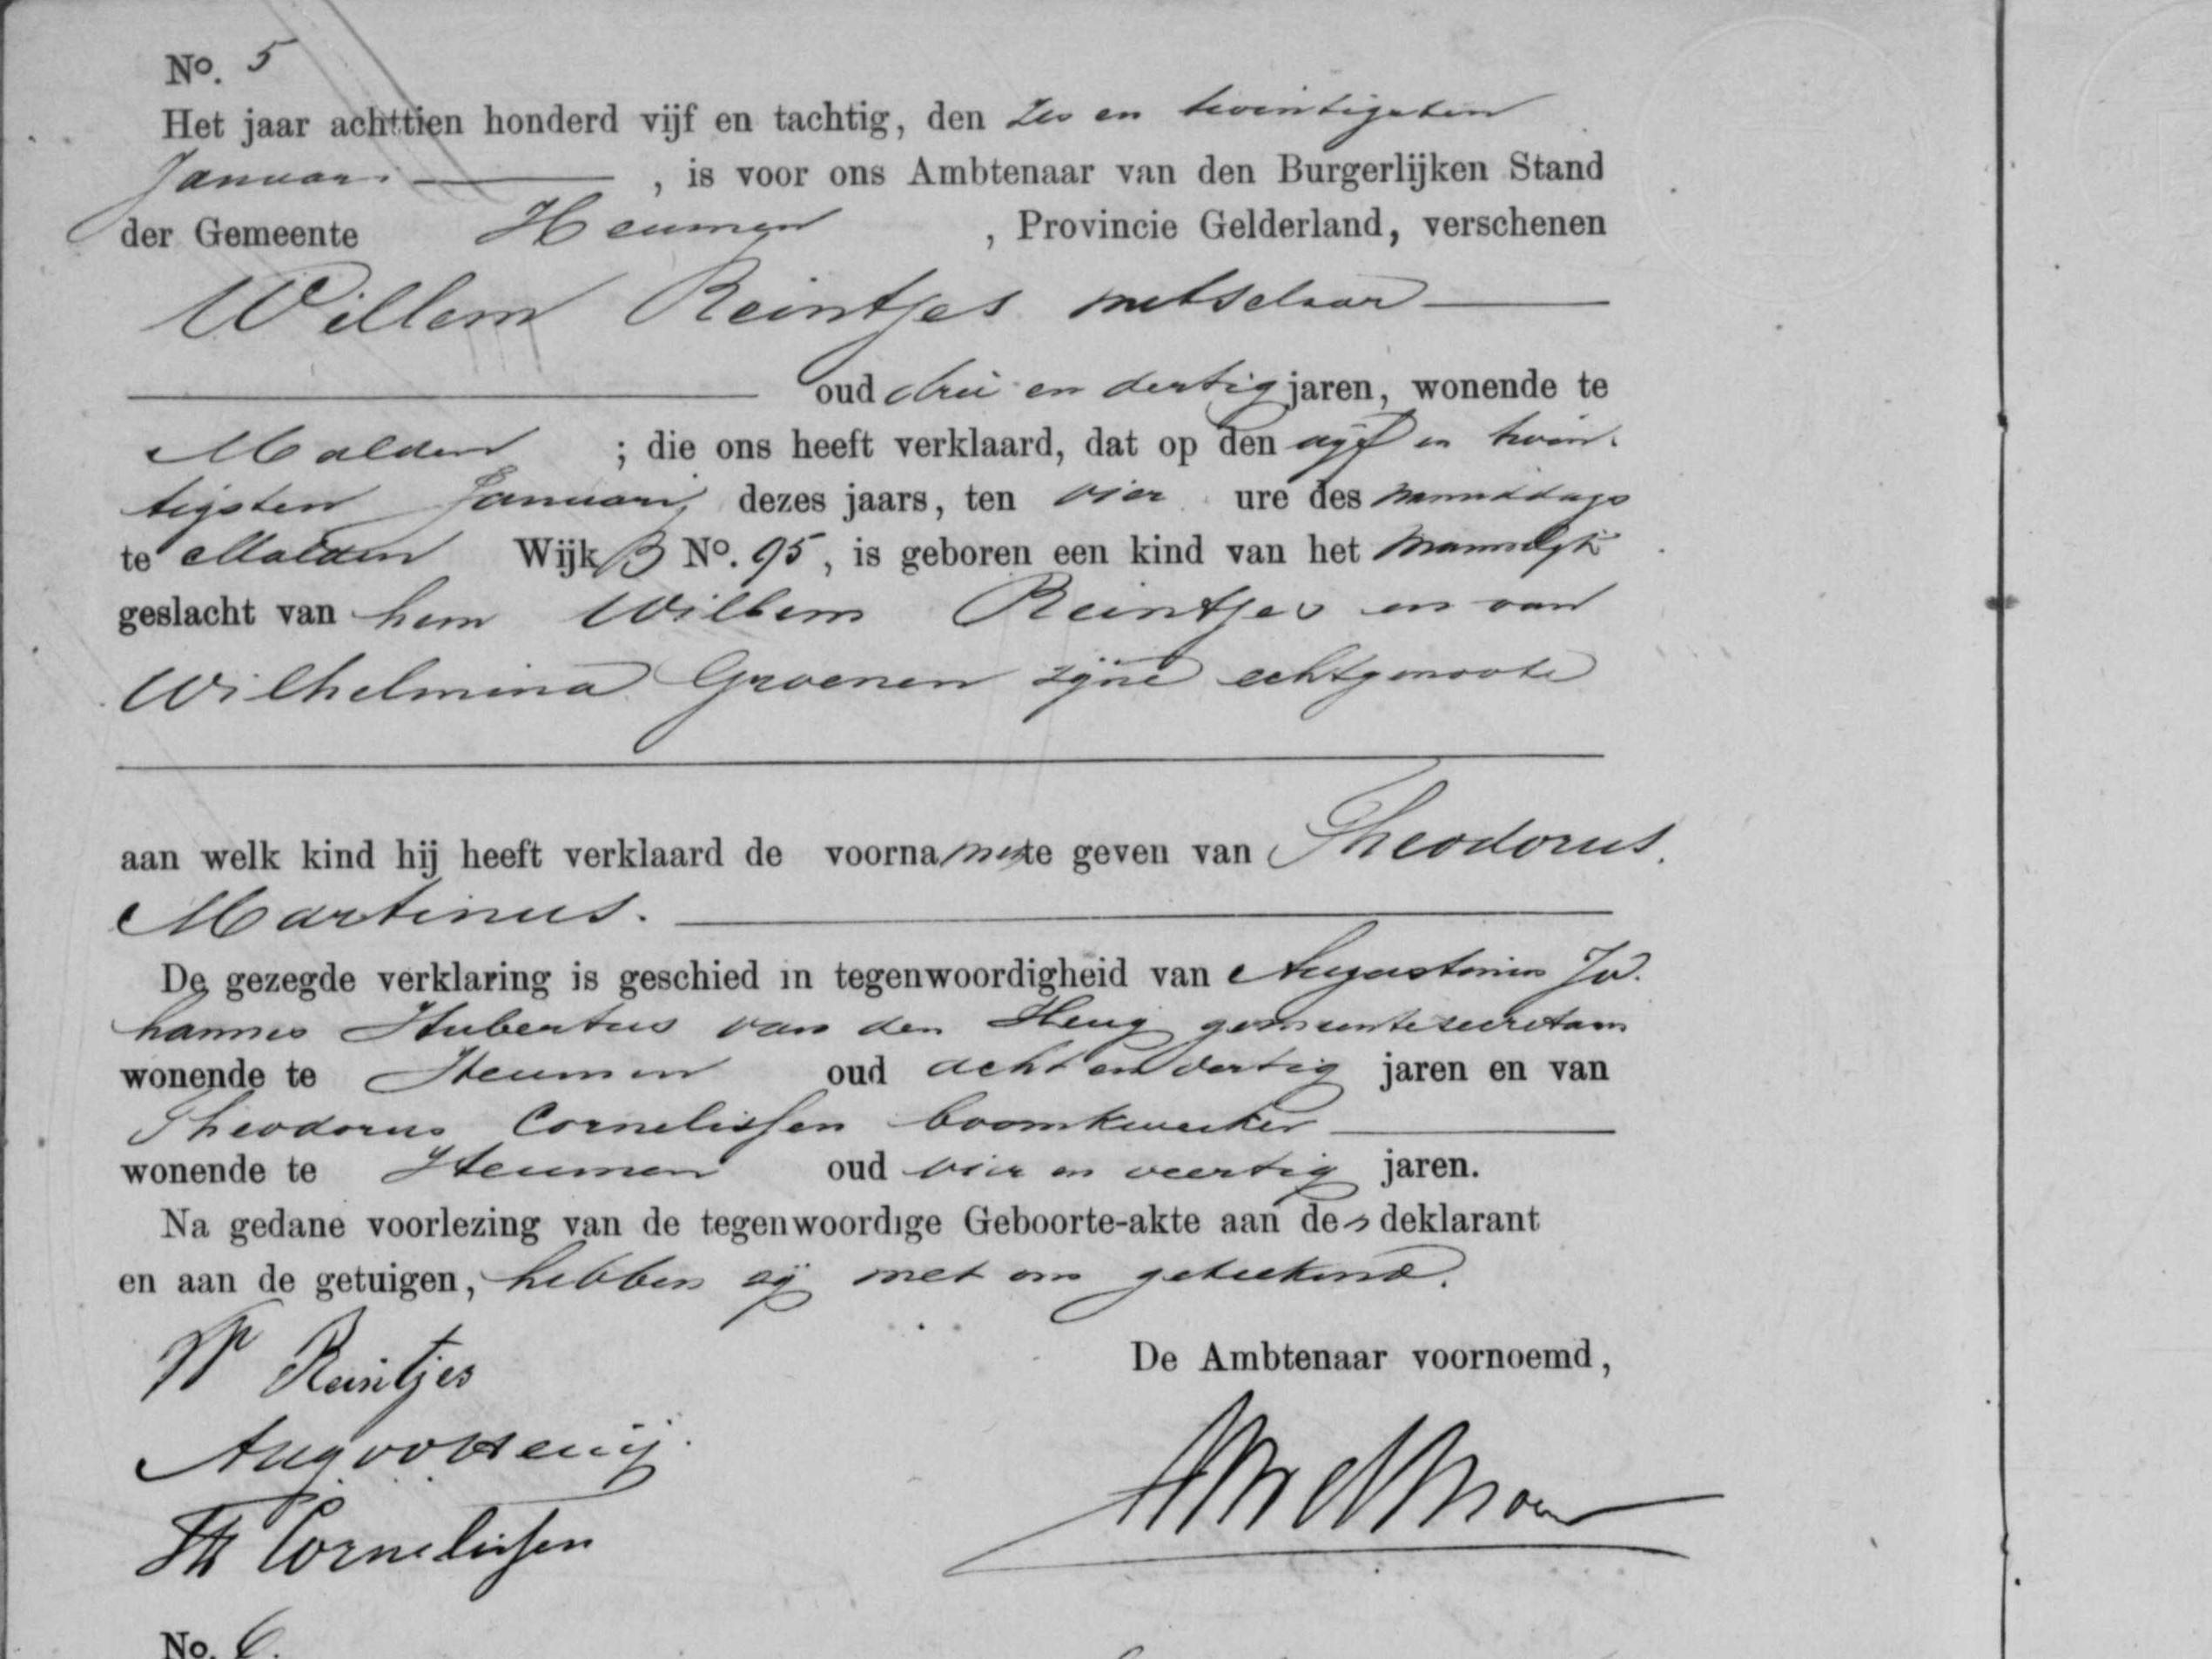 No. 5
Het jaar achttien honderd vijf en tachtig, den zes en twintigsten
Januari , is voor ons Ambtenaar van den Burgerlijken Stand
der Gemeente Heumen , Provincie Gelderland, verschenen
Willem Reintjes metselaar
oud drie en dertig jaren, wonende te
Malden ; die ons heeft verklaard, dat op den vijf en twin-
tigsten Januari, dezes jaars, ten vier ure des
te Malden Wijk B No. 95, is geboren een kind van het Mannelijk
geslacht van hem Willem Reintjes en van
Wilhelmina Groenen zijne echtgenoote
aan welk kind hij heeft verklaard de voornamen te geven van Theodorus.
Martinus.
De gezegde verklaring is geschied in tegenwoordigheid van Augustinus Jo.
hannes Hubertus van den gemeentesecretaris
wonende te Heumen oud acht en dertig jaren en van
Theodorus Cornelissen boomkweeker
wonende te Heumen oud vier en veertig jaren.
Na gedane voorlezing van de tegenwoordige Geboorte-akte aan den deklarant
en aan de getuigen, hebben zij met ons geteekend.
W Reintjes
De Ambtenaar voornoemd,
Th Cornelissen
No. 6.